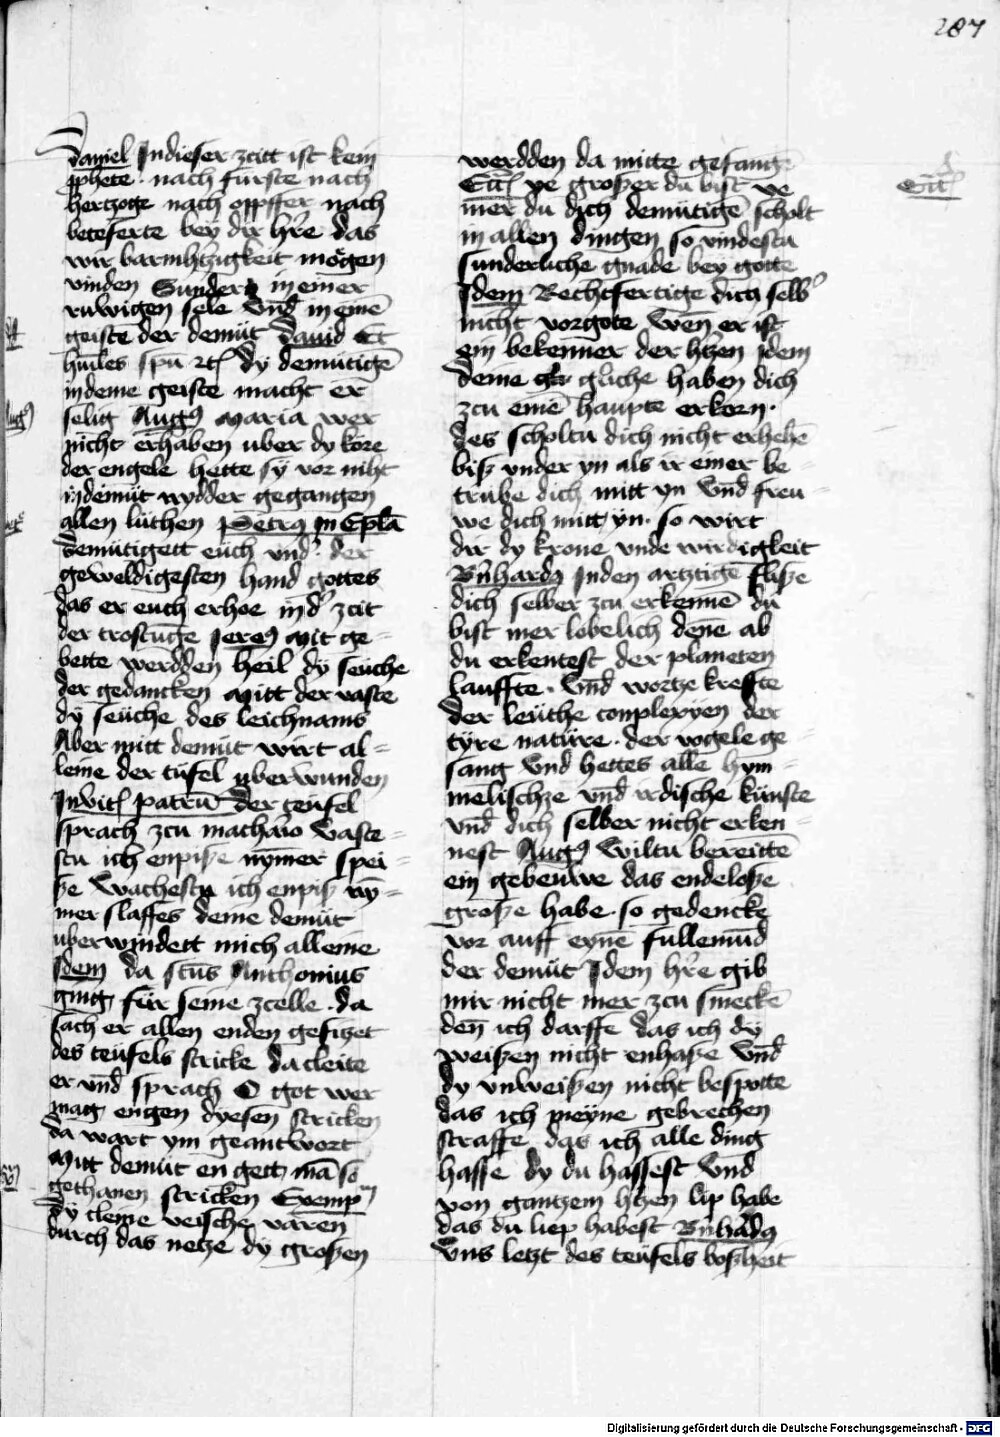 287
Daniel Indieser zcitt ist kein
ꝓphete · nach furste nach
hertzoge nach oppffer nach
beteferte bey dir hr̄e das
wir barmh̄tzigkeit mogen
vinden Sunder in einer
ruwigen sele vnd̄ in einē
geiste der demut Dauid Et
hūiles spū dy demutigē
indeme geiste macht er
selig Augꝰ Maria wer
nicht erhaben uber dy kore
der engele hette sy vor niht
in demut nydder gegangen
allen luthen Petrꝰ In Epl̄a
Demutigett euch vnd · der
geweldigesten hand gottes
das er euch erhoe in d' zcit
der trostūge Jereꝰ Mit ge-
bette werdden heil dy seuche
der gedancken Mitt der vaste
dy seuche des leichnams
Aber mitt demut wirt al-
leine der tufel uberwunden
In vit patrū Der teufel
sprach zcu machario Vaste-
stu ich enpisze nymer spei-
sze Wachestu ich enpisz ny-
mer slaffes deine demut
uberwindett mich alleine
Idem da sct̄us Anthonius
ging fur seine zcelle · da
sach er allen enden gesitzet
des teufels stricke da cleite
er vnd̄ sprach O got wer
mag engen dyesen stricken
da wart ym geantwort
Mitt demut en gett mā so
gethanen stricken Exemp
Dy cleine veische varen
durch das netze dy groszen
werdden da mitte gefangē
Ecc̄ ye groszer du bist ye
mer du dich demutigē scholt
in allen dingen so vindestu
sunderliche gnade bey gotte
Idem Rechtfertige dich selb'
nicht vorgote Wen̄ er ist
ein bekenner der h̄tzen Idem
deme gliche haben dich
zcu einē haupte erkorn ·
des scholtu dich nicht erhebē
bisz vnder yn als ir einer be-
trube dich mitt yn Vnd̄ freu-
we dich mitt yn · so wirt
dir dy krone vnde wirdigkeit
Bn̄hardꝰ In den artztigē flisze
dich selber zcu erkennē du
bist mer lobelich denē ab
du erkentest der planeten
lauffte · Vnd̄ wortze kreffte
der leuthe conplexyen der
tyre nature · der vogele ge-
sang Vnd hettes alle hym-
melischze vnd̄ irdische kunste
vnd̄ dich selber nicht erken-
nest Augꝰ Wiltu bereittē
ein gebeuwe das endelosze
grosze habe · so gedencke
vor auff eynē fullemūd
der demut Idem hr̄e gib
mir nicht mer zcu smeckē
den̄ ich darffe das ich dy
weiszen nicht enhasze Vnd̄
dy vnweiszen nicht bespotte
das ich meyne gebrechen
straffe das ich alle ding
hasse dy du hassest Vnd̄
von gantzem h̄tzen lip habe
das du liep habest Bn̄hadꝰ
Vns letzt des teufels boszheit
Ecc̄
Digitalisierung gefördert durch die Deutsche Forschungsgemeinschaft - DFG